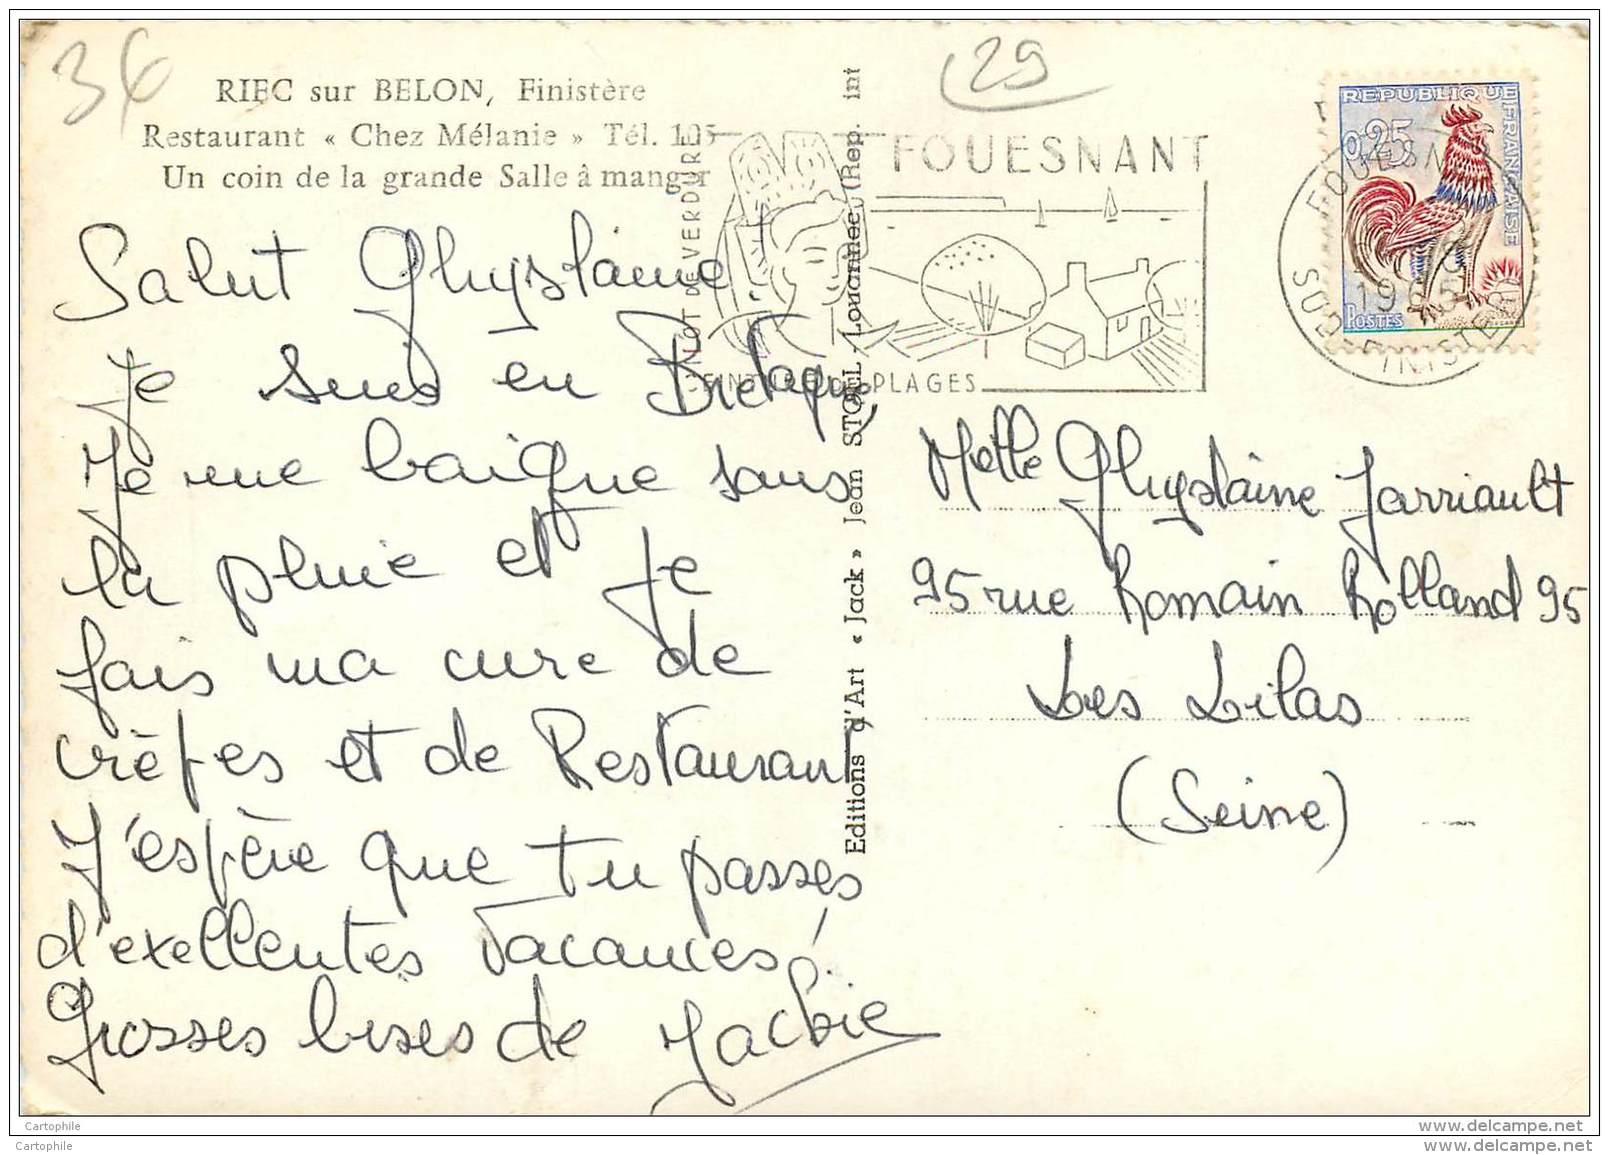 36
RIEC sur BELON, Finistère
Restaurant « Chez Mélanie » Tél. 105
Un coin de la grande Salle à manger
Salut Ghyslaine,
Je suis en Bretagne,
Je me baigne sous
la pluie et je
fais ma cure de
crèpes et de Restaurant
J'espère que tu passes
d'exellentes Vacances!
Grosses bises de Jackie
Editions d'Art « Jack » Jean STOLL - Louannec (Rep. int
29
FOUESNANT
NOT DE VERDURE
CEINTURE DE PLAGES
REPUBLIQUE FRANÇAISE
0,25
POSTES
FOUESNANT
1965
FINISTERE
Melle Ghyslaine Jarriault
95 rue Romain Rolland 95
Les Lilas
(Seine)
Cartophile
www.delcampe.net
Cartophile
www.delcampe.net